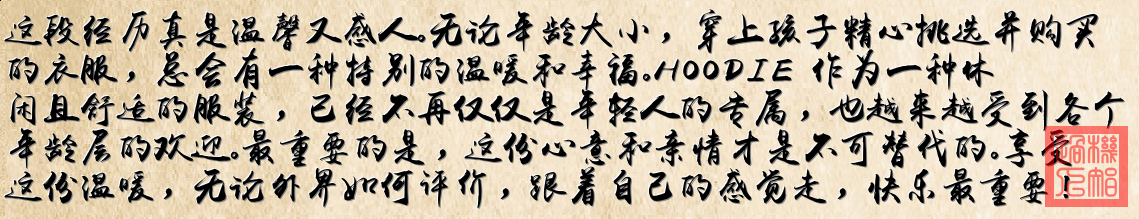 这段经历真是温馨又感人。无论年龄大小，穿上孩子精心挑选并购买
的衣服，总会有一种特别的温暖和幸福。HOODIE 作为一种休
闲且舒适的服装，已经不再仅仅是年轻人的专属，也越来越受到各个
年龄层的欢迎。最重要的是，这份心意和亲情才是不可替代的。享受
这份温暖，无论外界如何评价，跟着自己的感觉走，快乐最重要！